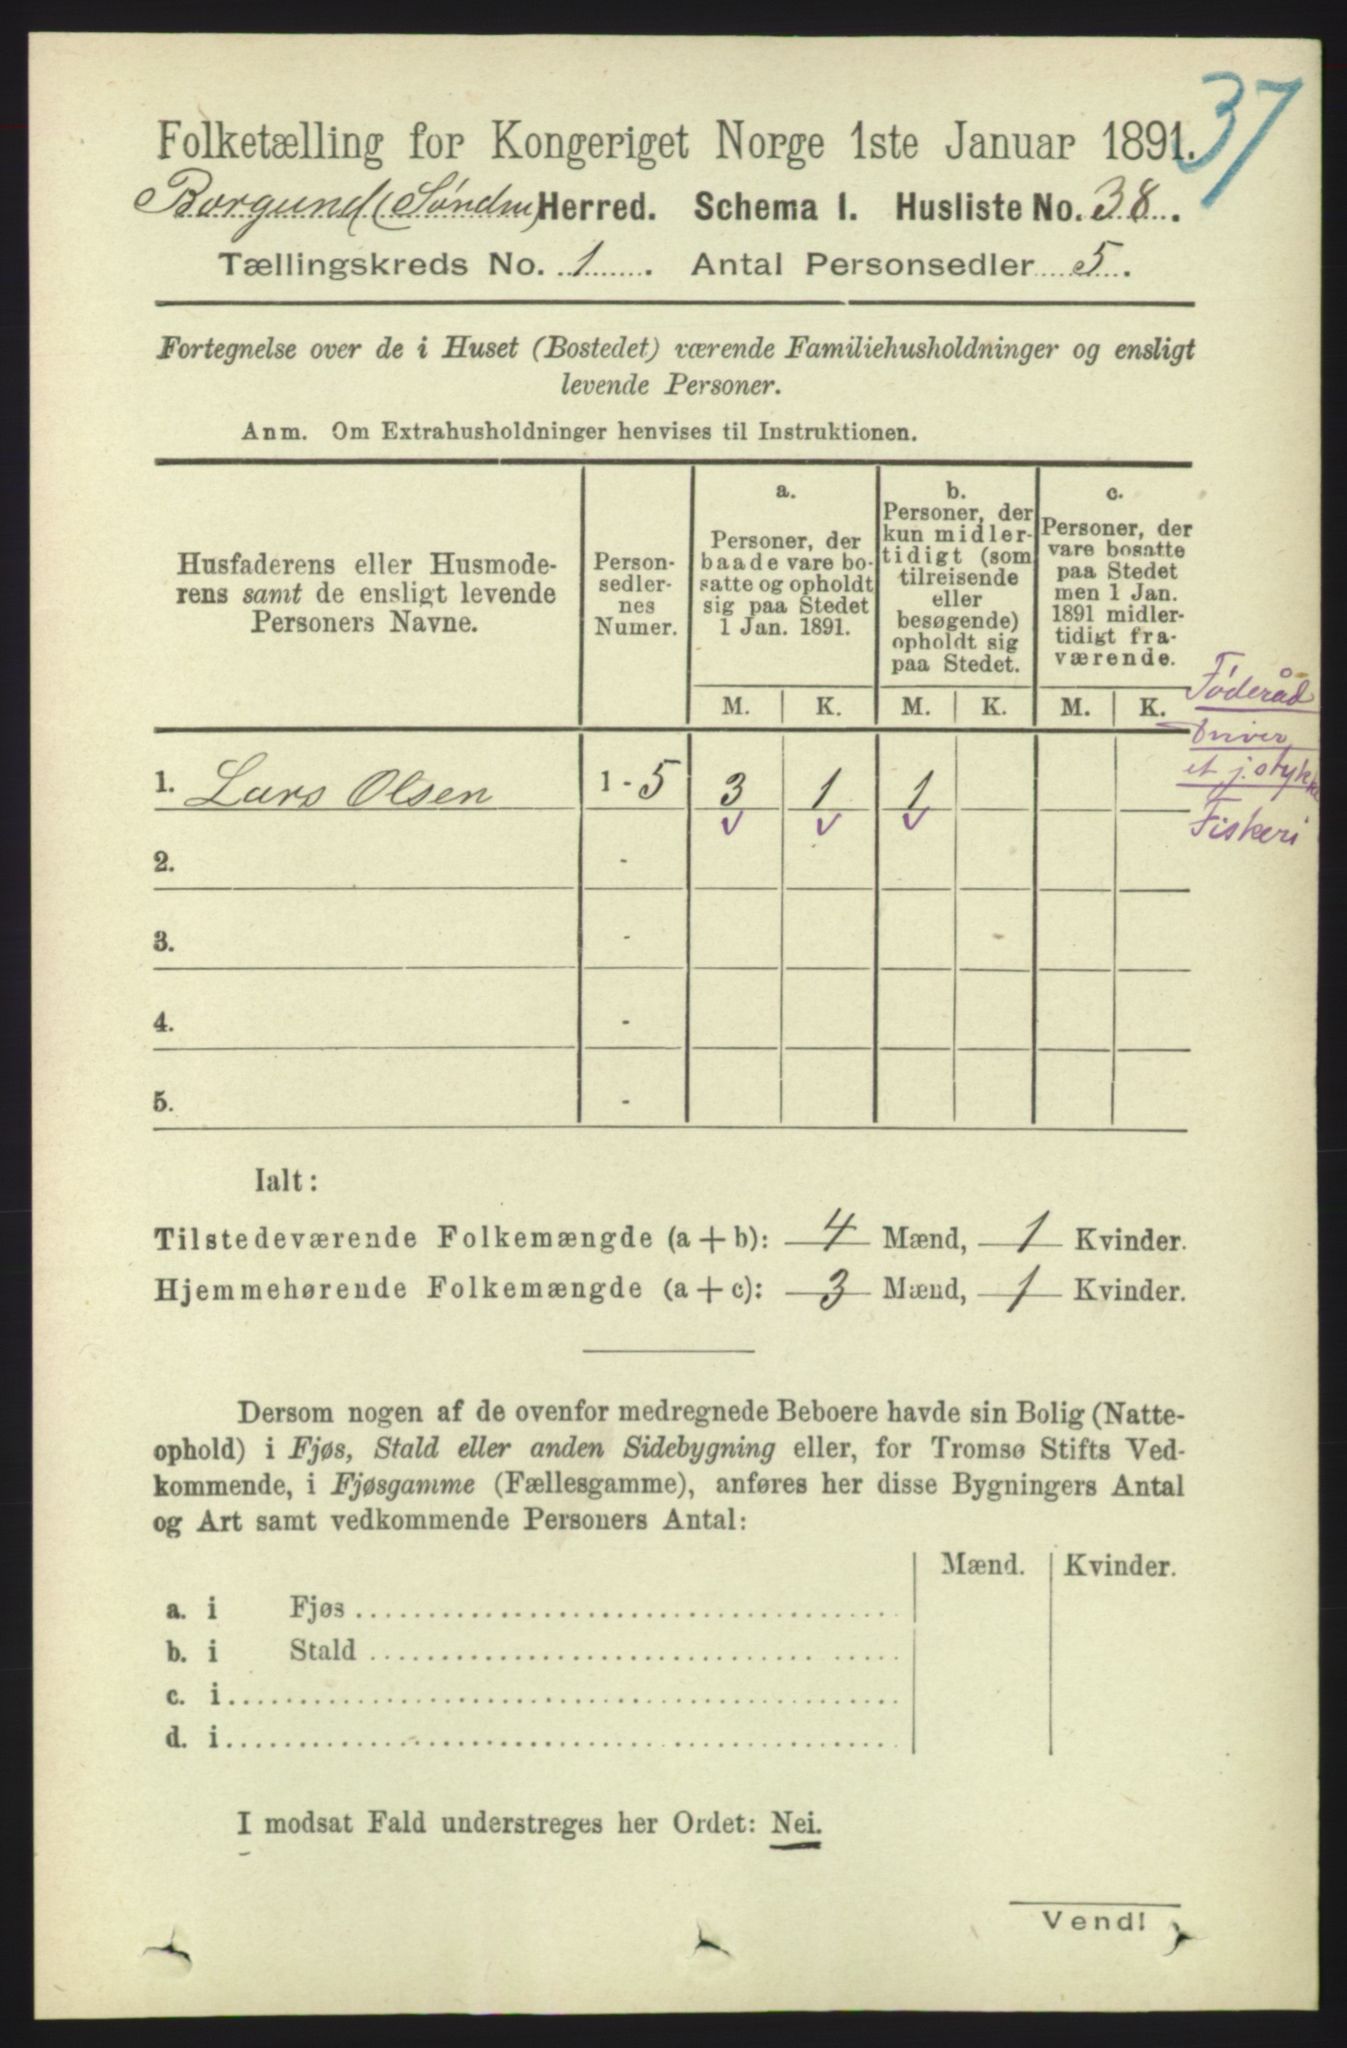 37
Folketælling for Kongeriget Norge 1ste Januar 1891.
Borgund (Søndm) Herred. Schema I. Husliste No. 38.
Tællingskreds No. 1. Antal Personsedler 5.
Fortegnelse over de i Huset (Bostedet) værende Familiehusholdninger og ensligt
levende Personer.
Anm. Om Extrahusholdninger henvises til Instruktionen.
Husfaderens eller Husmode-
rens samt de ensligt levende
Personers Navne.
Person-
sedler-
nes
Numer.
a.
Personer, der
baade vare bo-
satte og opholdt
sig paa Stedet
1 Jan. 1891.
b.
Personer, der
kun midler-
tidigt (som
tilreisende
eller
besøgende)
opholdt sig
paa Stedet.
c.
Personer, der
vare bosatte
paa Stedet
men 1 Jan.
1891 midler-
tidigt fra-
værende.
M. K. M. K. M. K.
Föderåd
Driver
et j.stykke
Fiskeri
1. Lars Olsen 1 - 5 3 1 1
v v v
2. -
3. -
4. -
5. -
Ialt:
Tilstedeværende Folkemængde (a + b): 4 Mænd, 1 Kvinder.
Hjemmehørende Folkemængde (a + c): 3 Mænd, 1 Kvinder.
Dersom nogen af de ovenfor medregnede Beboere havde sin Bolig (Natte-
ophold) i Fjøs, Stald eller anden Sidebygning eller, for Tromsø Stifts Ved-
kommende, i Fjøsgamme (Fællesgamme), anføres her disse Bygningers Antal
og Art samt vedkommende Personers Antal:
Mænd. Kvinder.
a. i Fjøs
b. i Stald
c. i
d. i
I modsat Fald understreges her Ordet: Nei.
Vend!